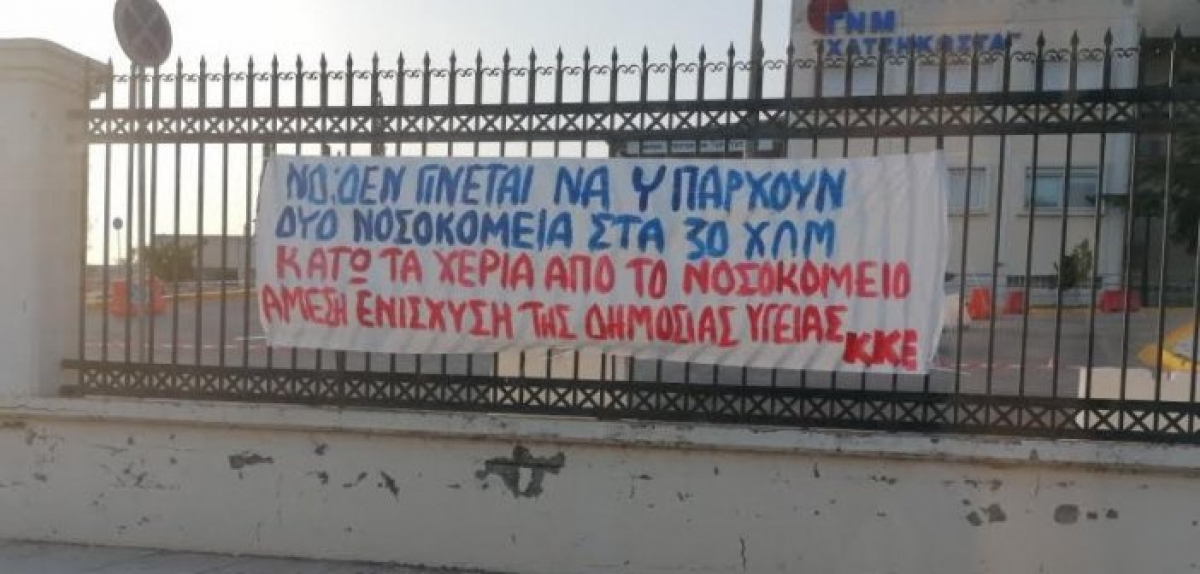 ΓΝΜ
"ΧΑΤΖΗΚΩΣΤΑ"
ΝΔ: ΔΕΝ ΓΙΝΕΤΑΙ ΝΑ ΥΠΑΡΧΟΥΝ
ΔΥΟ ΝΟΣΟΚΟΜΕΙΑ ΣΤΑ 30 ΧΛΜ
ΚΑΤΩ ΤΑ ΧΕΡΙΑ ΑΠΟ ΤΟ ΝΟΣΟΚΟΜΕΙΟ
ΑΜΕΣΗ ΕΝΙΣΧΥΣΗ ΤΗΣ ΔΗΜΟΣΙΑΣ ΥΓΕΙΑΣ
ΚΚΕ